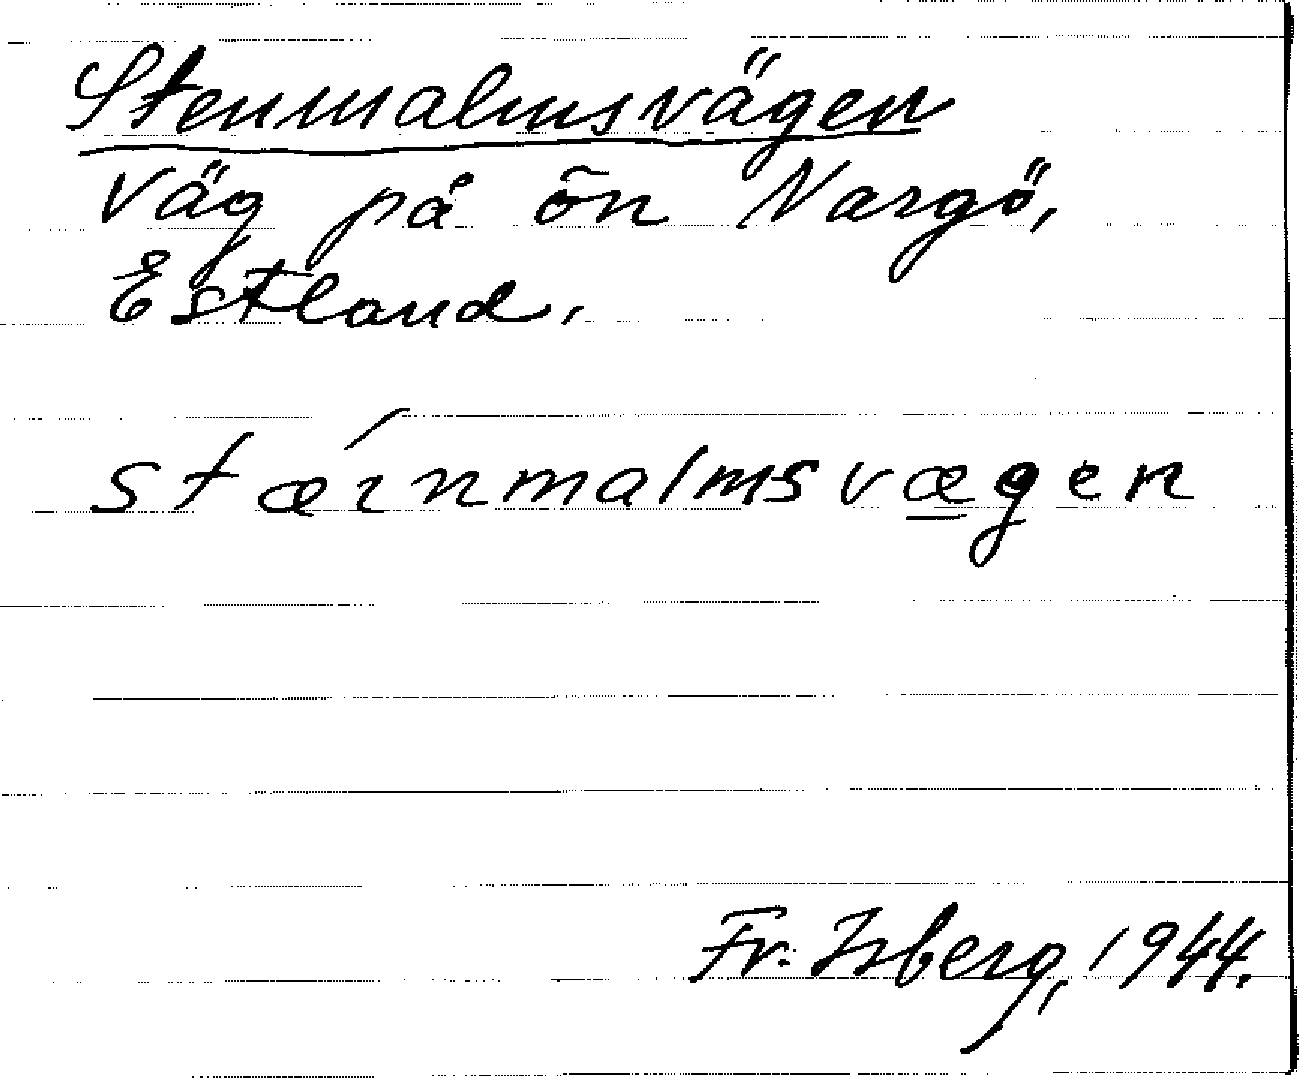 Stenmalmsvägen
Väg på ön Nargö,
Estland.
stæ´ınmalmsvæ̲gen
Fr. Isberg, 1944.